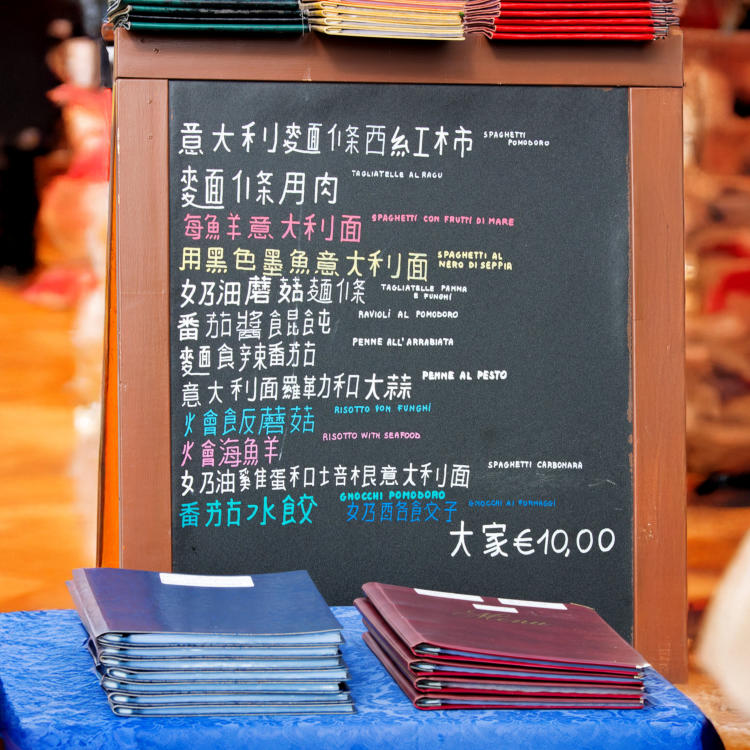 意大利麵條西紅柿 SPAGHETTI POMODORO
麵條用肉 TAGLIATELLE AL RAGU
每魚羊意大利面 SPAGHETTI CON FRUTTI DI MARE
用黑色墨魚意大利面 SPAGHETTI AL NERO DI SEPPIA
奶油蘑菇麵條 TAGLIATELLE PANNA E FUNGHI
番茄醬餛飩 RAVIOLI AL POMODORO
麵食辛辣番茄 PENNE ALL'ARRABIATA
意大利面羅勒和大蒜 PENNE AL PESTO
火會食反蘑菇 RISOTTO CON FUNGHI
火會海魚羊 RISOTTO WITH SEAFOOD
奶油雞隹蛋和土培根意大利面 SPAGHETTI CARBONARA
番茄水餃 GNOCCHI PONODORO 奶酪餃子 GNOCCHI AI FORMAGGI
大家€10,00
Menu